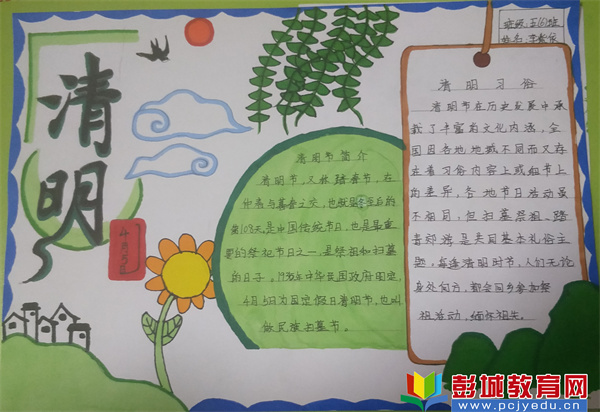 清明
4月5日
清明节简介
清明节,又称踏春节,在
仲春与暮春之交,也就是冬至后的
第108天是中国传统节日,也是最重
要的祭祀节日之一,是祭祖和扫墓
的日子,1935年中华民国政府明定,
4月5日为国定假日清明节,也叫
做民族扫墓节。
班级:五(6)班
姓名:李
清明习俗
清明节在历史发展中承
载了丰富的文化内涵,全
国因各地地域不同而又存
在着习俗内容上或细节上
的差异,各地节日活动虽
不相同,但扫墓祭祖、踏
青郊游是共同基本礼俗主
题,每逢清明时节,人们无论
身处何方,都会回乡参加祭
祖活动,缅怀祖先。
彭城教育网
www.pcjyedu.cn